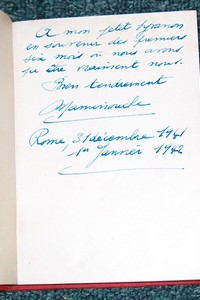 A mon petit
en souvenir des premiers
six mois où nous avons
pu être vraiment nous.
Bien tendrement
Rome, 31 décembre 1941
1er Janvier 1942